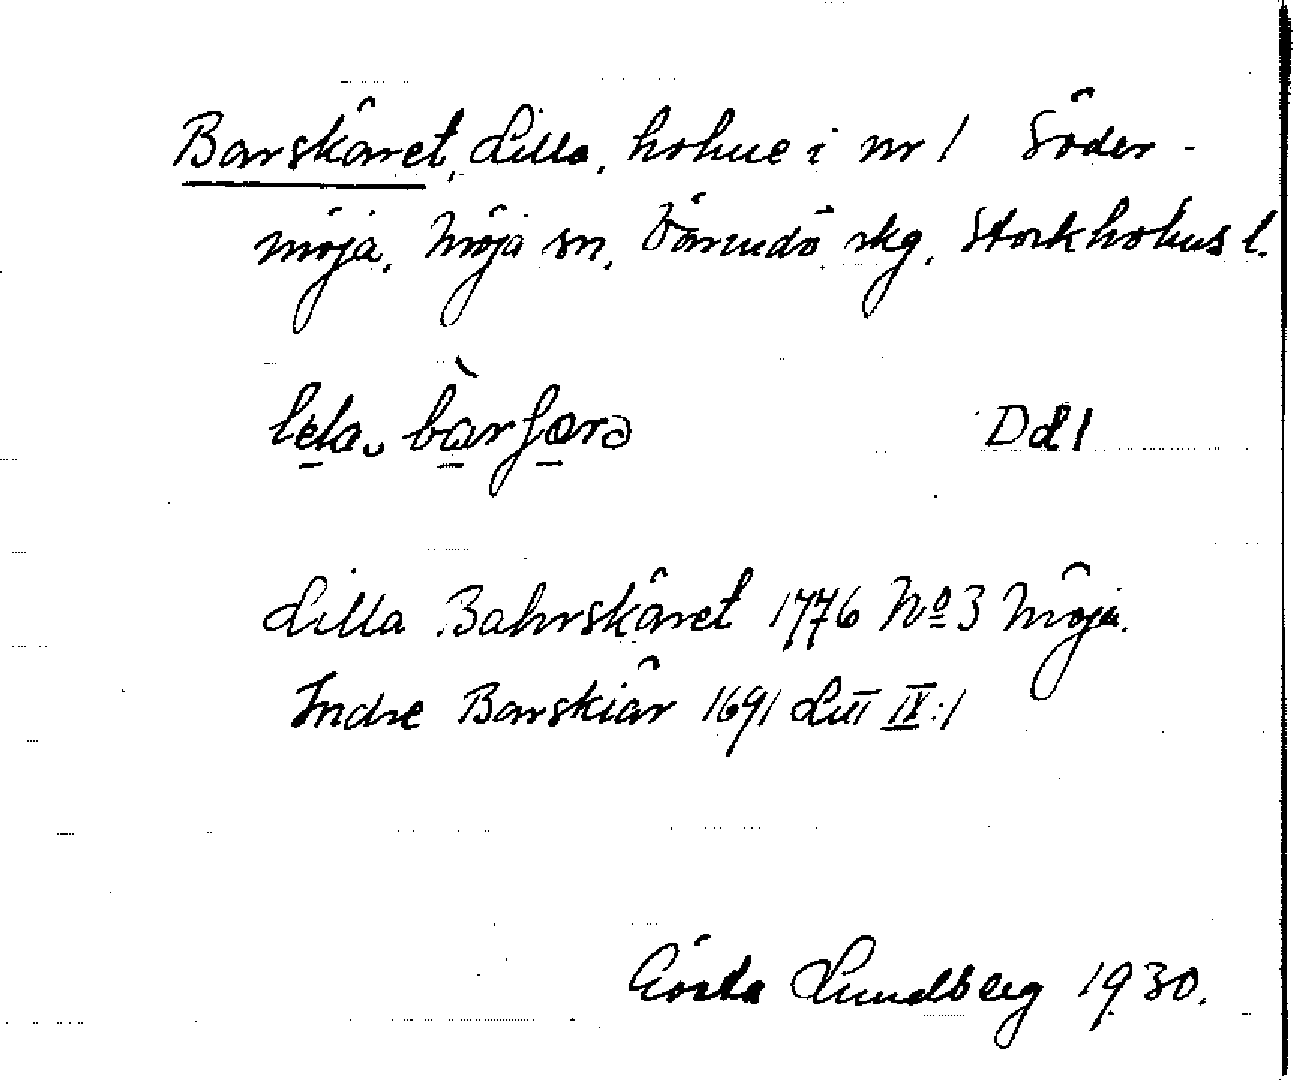 Barskäret, Lilla, holme i nr 1 Söder-
möja, Möja sn, Värmdö skg, Stockholms l.
Dd 1
Lilla Bahrskäret 1776 No 3 Möja.
Indre Barskiär 1691 Litt IX:1
Gösta Lundberg 1930.